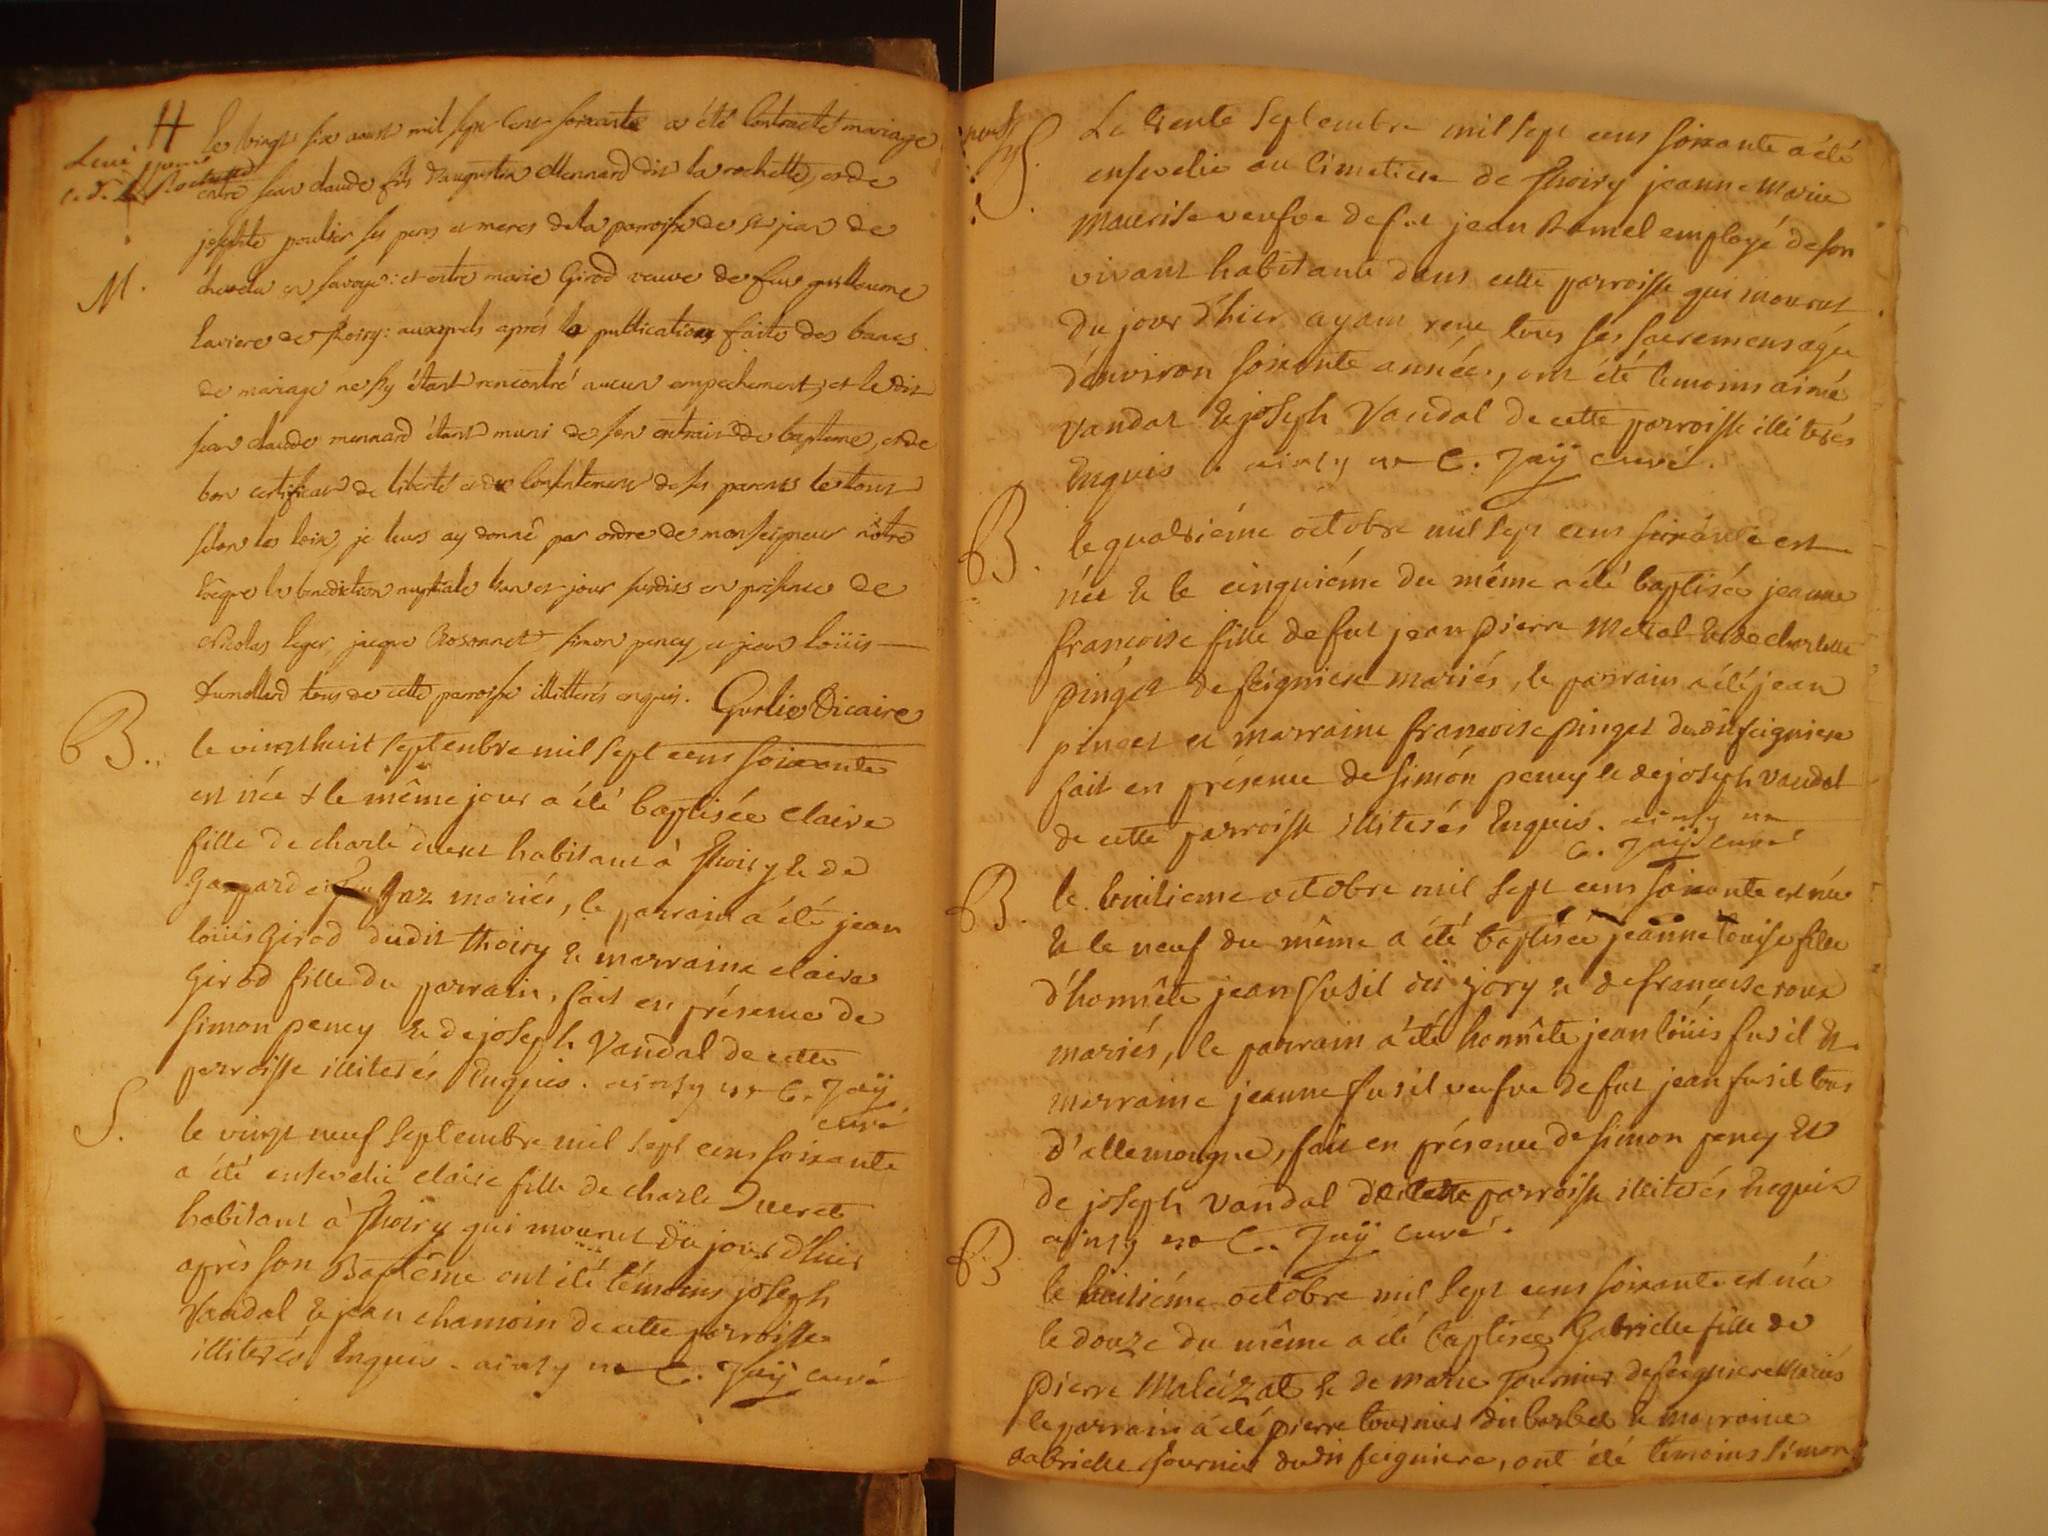 H
le vingt six aoust mil sept cent soixante a été contracté mariage
entre jean claude fils d'augustin Mennard dit la rochette, et de
josephte poulier ses peres et meres de la parroisse de st jean de
en savoye : et entre marie Girod veuve de feu guilleaume
laviere de thoiry : auxquels aprés la publication faite des bancs
de mariage ne s'y étant rencontré aucun empechement, et le dit
jean claude mennard étant muni de son extrait de bapteme, et de
bon certificat de liberté et du consentement de ses parents le tout
selon les loix, je leurs ay donné par ordre de monseigneur nôtre
évêque la benediction nuptiale l'an et jour susdits en présence de
Nicolas leger jacque simon peney, et jean loüis
tous de cette parroisse illitterés enquis. Gurlie Vicaire
M.
B.
le vingthuit septembre mil sept cens soixante
est née & le même jour a été baptisée claire
fille de charle Duret habitant à thoiry & de
mariés, le parrain a été jean
loüis Girod dudit thoiry & marraine claire
Girod fille du parrain, fait en présence de
simon peney & de joseph Vandal de cette
parroisse illiterés Enquis. ainsy est C. Jaÿ
curé
S.
le vingt neuf septembre mil sept cens soixante
a été ensevelie claire fille de charle Duret
habitant à thoiry qui mourut du jour d'hier
après son Baptême ont été témoins joseph
Vandal & jean chamoin de cette parroisse
illiterés Enquis. ainsy est C. Jaÿ curé
S.
Le trente septembre mil sept cens soixante a été
ensevelie au cimetiere de thoiry jeanne Marie
Maurise veufve de fut jean Ramel employé de son
vivant habitante dans cette parroisse qui mourut
du jour d'hier ayant reçue tous ses sacremens agée
d'environ soixante années, ont été temoins aimé
Vandal & joseph Vandal de cette parroisse illiterés
Enquis. ainsy est C. Jaÿ curé.
B.
le quatriéme octobre mil sept cens soixante est
née & le cinquiéme du même a été baptisée jeanne
françoise fille de fut jean pierre Metral & de charlotte
pinget de feigniere mariés, le parrain a été jean
pinget et marraine françoise pinget dudit feigniere
fait en présence de simón peney & de joseph Vandal
de cette parroisse illiterés Enquis. ainsy est
C. Jaÿ curé
B.
le huitieme octobre mil sept cens soixante est née
& le neuf du même a été baptisée jeanne loüise fille
d'honnête jean fusil dit jory & de françoise roux
mariés, le parrain a été honnête jean loüis fusil &
marraine jeanne fusil veufve de fut jean fusil tous
d'allemogne, fait en présence de simon peney &
de joseph Vandal de cette parroisse illiterés Enquis
ainsy est C. Jaÿ curé.
B.
le huitiéme octobre mil sept cens soixante est née
le douze du même a été baptisée Gabrielle fille de
pierre Malézat & de marie fournier de feigniere Mariés
le parrain a été pierre tournier dit barbet & marraine
Gabrielle fournier dudit feigniere, ont été témoins simon